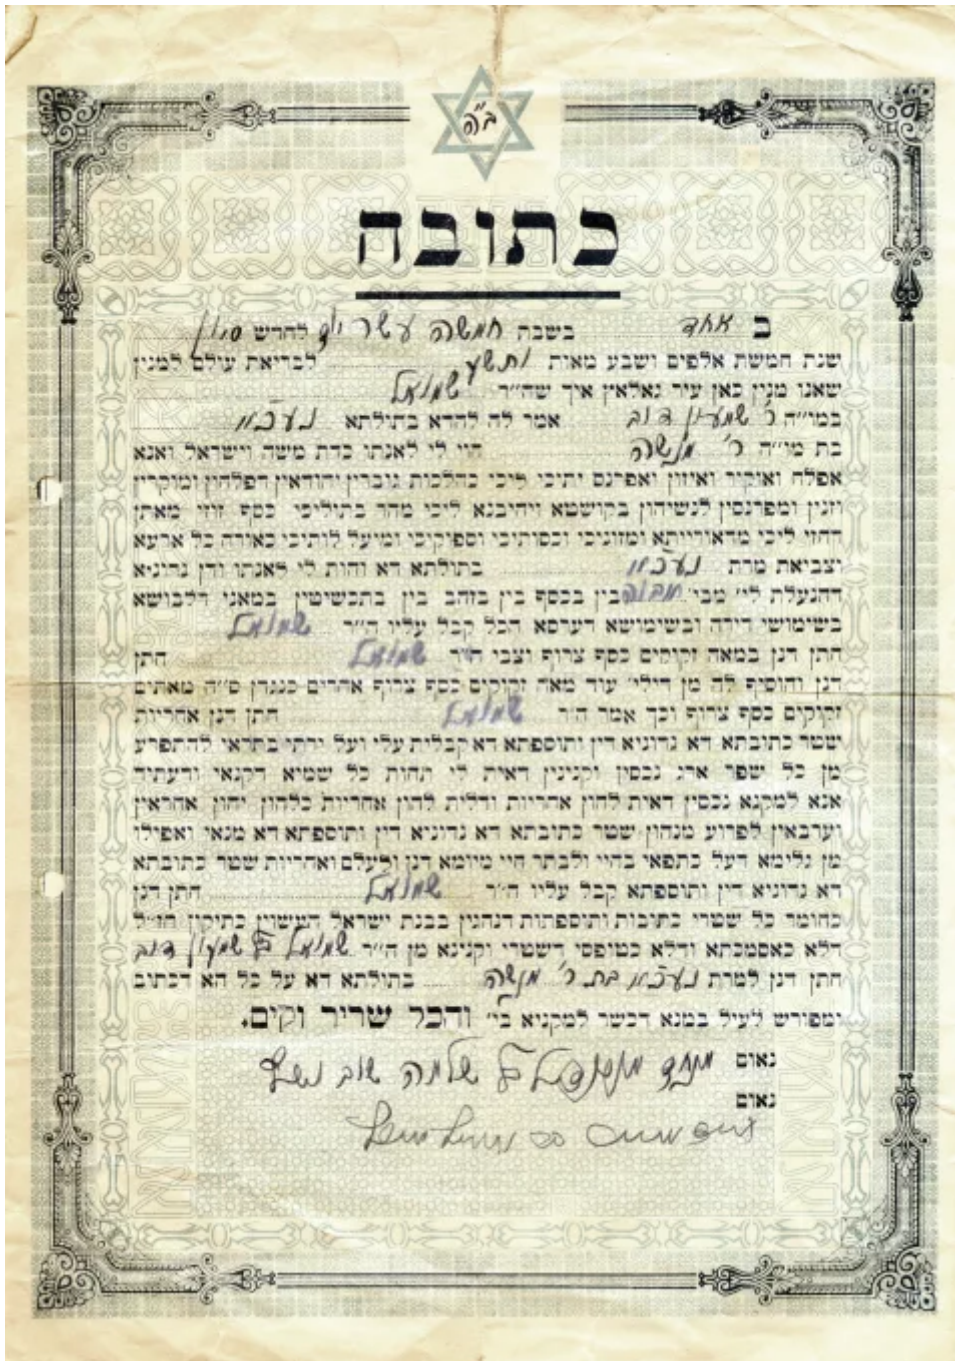 ב"ה
כתובה
ב אחד בשבת חמשה עשר יום לחדש סיון
שנת חמשת אלפים ושבע מאות ותשע לבריאת עולם למנין
שאנו מנין כאן עיר גאלאץ איך שה״ר שמואל
במו״ה ר' שמעון דוב אמר לה להדא בתולתא נעכא
בת מו״ה ר' מנשה הוי לי לאנתו כדת משה וישראל ואנא
אפלח ואוקיר ואיזון ואפרנס יתיכי ליכי כהלכות גוברין יהודאין דפלחין ומוקרין
וזנין ומפרנסין לנשיהון בקושטא ויהיבנא ליכי מהר בתוליכי כסף זוזי מאתן
דחזי ליכי מדאורייתא ומזוניכי וכסותיכי וסיפוקיכי ומיעל לותיכי כאורח כל ארעא
וצביאת מרת בתולתא דא והות לי לאנתו ודן נדוניא
דהנעלת לי׳ מבי בין בכסף בין בזהב בין בתכשיטין במאני דלבושא
בשימושי דירה ובשימושא דערסא הכל קבל עליו ה״ר שמואל
חתן דנן במאה זקוקים כסף צרוף וצבי ה״ר שמואל חתן
דנן והוסיף לה מן דילי׳ עוד מאה זקוקים כסף צרוף אחרים כנגדן ס״ה מאתים
זקוקים כסף צרוף וכך אמר ה״ר שמואל חתן דנן אחריות
שטר כתובתא דא נדוניא דין ותוספתא דא קבלית עלי ועל ירתי בתראי להתפרע
מן כל שפר ארג נכסין וקנינין דאית לי תחות כל שמיא דקנאי ודעתיד
אנא למקנא נכסין דאית להון אחריות ודלית להון אחריות כלהון יהון אחראין
וערבאין לפרוע מנהון שטר כתובתא דא נדוניא דין ותוספתא דא מנאי ואפילו
מן גלימא דעל כתפאי בחיי ולבתר חיי מיומא דנן ולעלם ואחריות שטר כתובתא
דא נדוניא דין ותוספתא קבל עליו ה״ר שמואל חתן דנן
כחומר כל שטרי כתובות ותוספתות דנהגין בבנת ישראל העשוין כתיקון חז״ל
דלא כאסמכתא ודלא כטופסי דשטרי וקנינא מן ה״ר שמואל בר שמעון דוב
חתן דנן למרת בת ר' מנשה בתולתא דא על כל הא דכתוב
ומפורש לעיל במנא דכשר למקניא בי׳ והכל שריר וקים.
נאום שלמה שוב
נאום